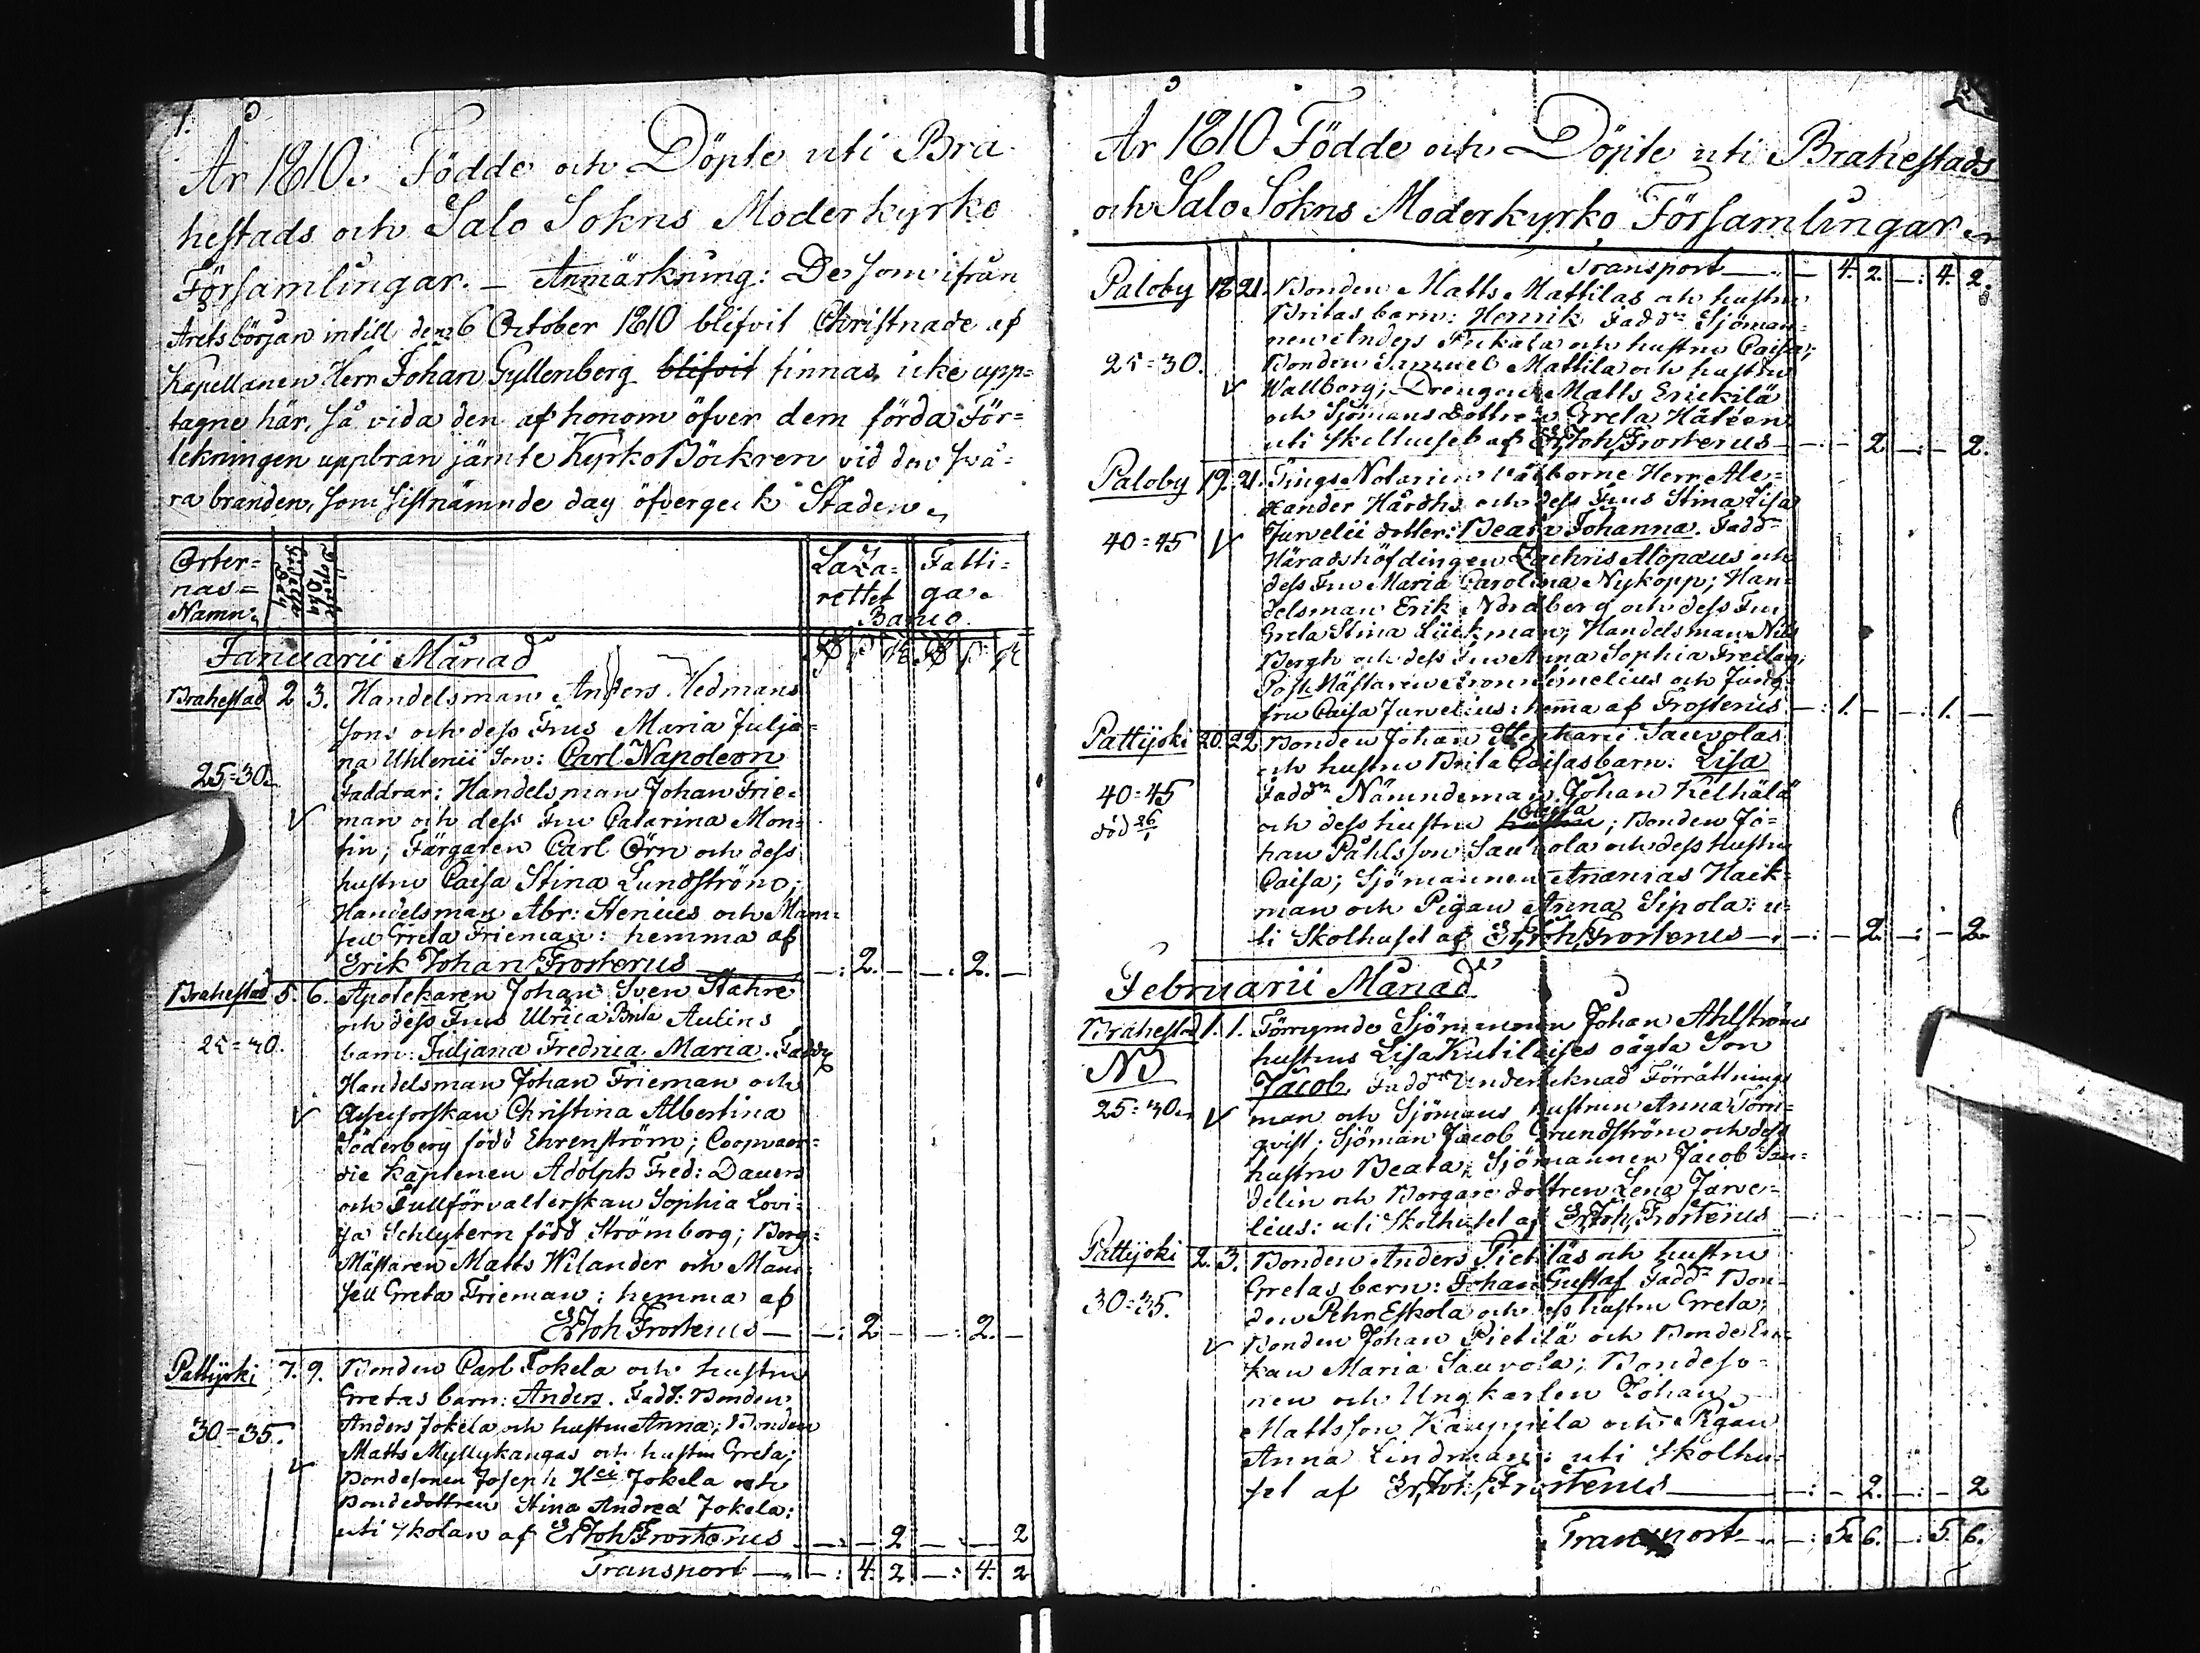 1.
År 1810. Födde och Döpte uti Bra-
hestads och Salo Sokns Moderkyrko
Församlingar. – Anmärkning: De som ifrån
Årets början intill den 6 October 1810 blifvit Christnade af
Kapellanen Herr Johan Gyllenberg blifvit finnas icke upp=
tagne här, så vida den af honom öfver dem förda För=
tekningen uppbran jämte KyrkoBöckren vid den svå=
ra branden, som sistnämnde dag öfvergick Staden
Orter=
nas=
Namn.
Födelse
Dag
Döpelse
Dag
Laza=
rettet
Fatti=
ga.
Banco.
Januarii Månad
Brahestad 2 3. Handelsman Anders Hedmans
sons och dess Frus Maria Julja=
na Uhlenii Son: Carl Napoleon
25=30.
Faddrar: Handelsman Johan Frie=
man och dess Fru Catarina Mon=
tin; Färgaren Carl Örn och dess
hustru Caisa Stina Lundström;
Handelsman Abr: Stenius och Mam=
sell Greta Frieman: hemma af
Erik Johan Frosterus —: 2. — —: 2. —
Brahestad 5. 6. Apotekaren Johan Sven Stahre
och dess Frus Ulrica Brita Aulins
25=30.
barn: Juljana Fredrica Maria. Faddr
Handelsman Johan Frieman och
Assessorskan Christina Albertina
Söderberg född Ehrenström; Coopvaer=
die Kaptenen Adolph Fred: Dauers
och Tullförvalterskan Sophia Lovi=
sa Schlytern född Strömborg; Borg=
Mästaren Matts Wilander och Mam=
sell Greta Frieman: hemma af
ErJoh Frosterus — —: 2 — —: 2. —
Pattijoki 7. 9. Bonden Carl Jokela och hustru
Gretas barn: Anders. Fadd: Bonden
30=35.
Anders Jokela och hustru Anna; Bonden
Matts Myllykangas och hustru Greta;
Bondesonen Joseph Jokela och
Bondedottren Stina Andreæ Jokela:
uti skolan af ErJoh Frosterus —: — 2 —: — 2
Transport — —: 4. 2 —: 4. 2
År 1810 Födde och Döpte uti Brahestads
och Salo Sokns Moderkyrko Församlingar
Transport — — 4. 2. —: 4. 2.
Paloby 18 21. Bonden Matts Mattilas och hustru
Britas barn: Henrik Faddr Sjöman=
nen Anders och hustru Caisa;
25=30.
Bonden Samuel Mattila och hustru
Wallborg; Drengen Matts Erickilä
och Sjömans dottren Greta
uti Skolhuset af ErJoh Frosterus —: — 2 —: — 2.
Paloby 19. 21. Tings Notarien Välborne Herr Ale=
xander Hårdhs och dess Frus Stina Lisa
40=45
Jurvelii dotter: Beata Johanna. Faddr
Häradshöfdingen Zachris Alopæus och
dess Fru Maria Carolina Nykopp; Han=
delsman Erik Nordberg och dess Fru
Greta Stina Lückman; Handelsman Nils
Bergh och dess Fru Anna Sophia Freitag;
PostMästaren Simelius och Jung=
fru Caisa Jurvelius: hemma af Frosterus —: 1. — —: 1. —
Pattijoki 20. 22 Bonden Johan Stephani Sauvolas
och hustru Brita Caisas barn: Lisa
40=45
Faddr Nämndeman Johan Kelhälä
död 26/1
och dess hustru hustru Caisa; Bonden Jo=
han Påhlsson Sauvola och dess hustru
Caisa; Sjömannen Ananias Hack=
man och Pigan Anna Sipola: u=
ti Skolhuset af ErJoh Frosterus —: — 2. —: — 2.
Februarii Månad
Brahestad 1. 1. Förrymde Sjömannen Johan Ahlströms
hustrus Lisa oägta Son
NB
Jacob. Faddr Undertecknad Förrättnings
25=30.
man och Sjömans hustrun Anna Törn=
qvist; Sjöman Jacob Grundström och dess
hustru Beata; Sjömannen Jacob San=
delin och Borgare dottren Lena Jurve=
lius: uti Skolhuset af ErJoh Frosterus —: — — —: — —
Pattijoki 2. 3. Bonden Anders Pietiläs och hustru
Gretas barn: Johan Gustaf Faddr Bon=
30=35.
den Pehr Eskola och dess hustru Greta;
Bonden Johan Pietilä och BondeEn=
kan Maria Sauvola; Bondeso=
nen och Ungkarlen Johan
Mattsson Kauppila och Pigan
Anna Lindman: uti Skolhu=
set af ErJoh Frosterus —: — 2. —: — 2
Transport — —: 5. 6. —: 5. 6.